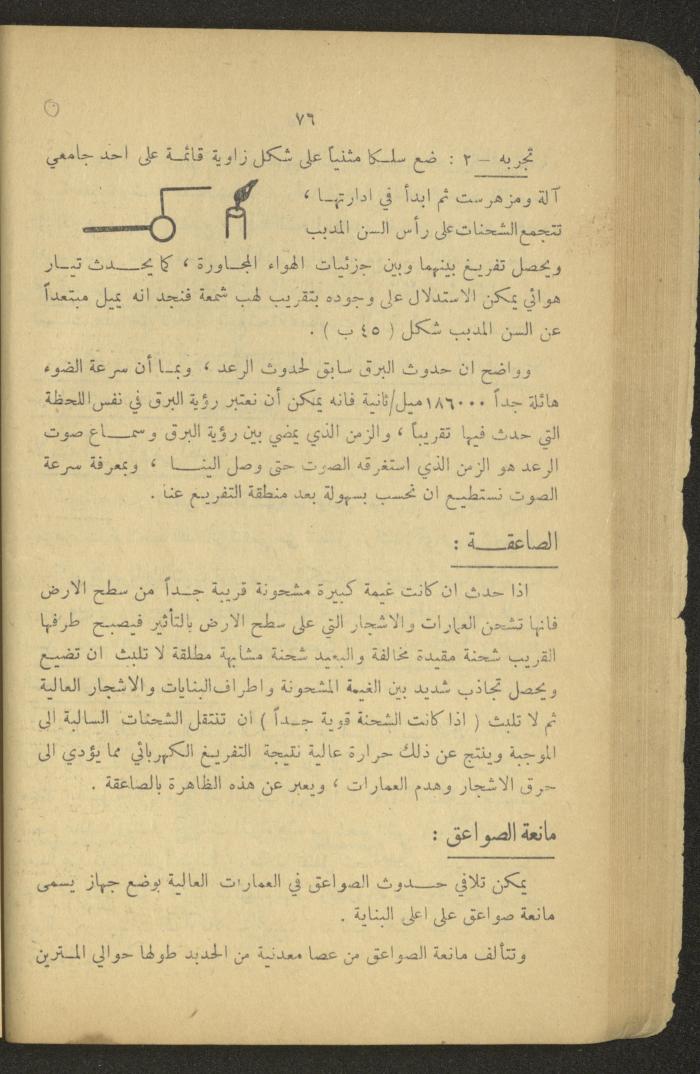 ٧٦
تجربه — ٢ : ضع سلكا مثنياً على شكل زاوية قائمة على احد جامعي
آلة ومزهرست ثم ابدأ في ادارتها ،
تتجمع الشحنات على رأس السن المدبب
ويحصل تفريغ بينهما وبين جزئيات الهواء المجاورة ، كما يحدث تيار
هوائي يمكن الاستدلال على وجوده بتقريب لهب شمعة فنجد انه يميل مبتعداً
عن السن المدبب شكل ( ٤٥ ب ) .
وواضح ان حدوث البرق سابق لحدوث الرعد ، وبما أن سرعة الضوء
هائلة جداً ١٨٦٠٠٠ميل/ثانية فانه يمكن أن نعتبر رؤية البرق في نفس اللحظة
التي حدث فيها تقريباً ، والزمن الذي يمضي بين رؤية البرق وسماع صوت
الرعد هو الزمن الذي استغرقه الصوت حتى وصل الينا ، وبمعرفة سرعة
الصوت نستطيع ان نحسب بسهولة بعد منطقة التفريغ عنا .
الصاعقة :
اذا حدث ان كانت غيمة كبيرة مشحونة قريبة جداً من سطح الارض
فانها تشحن العمارات والاشجار التي على سطح الارض بالتأثير فيصبح طرفها
القريب شحنة مقيدة مخالفة والبعيد شحنة مشابهة مطلقة لا تلبث ان تضيع
ويحصل تجاذب شديد بين الغيمة المشحونة واطراف البنايات والاشجار العالية
ثم لا تلبث ( اذا كانت الشحنة قوية جداً ) ان تنتقل الشحنات السالبة الى
الموجبة وينتج عن ذلك حرارة عالية نتيجة التفريغ الكهربائي مما يؤدي الى
حرق الاشجار وهدم العمارات ، ويعبر عن هذه الظاهرة بالصاعقة .
مانعة الصواعق :
يمكن تلافي حدوث الصواعق في العمارات العالية بوضع جهاز يسمى
مانعة صواعق على اعلى البناية .
وتتألف مانعة الصواعق من عصا معدنية من الحديد طولها حوالي المترين